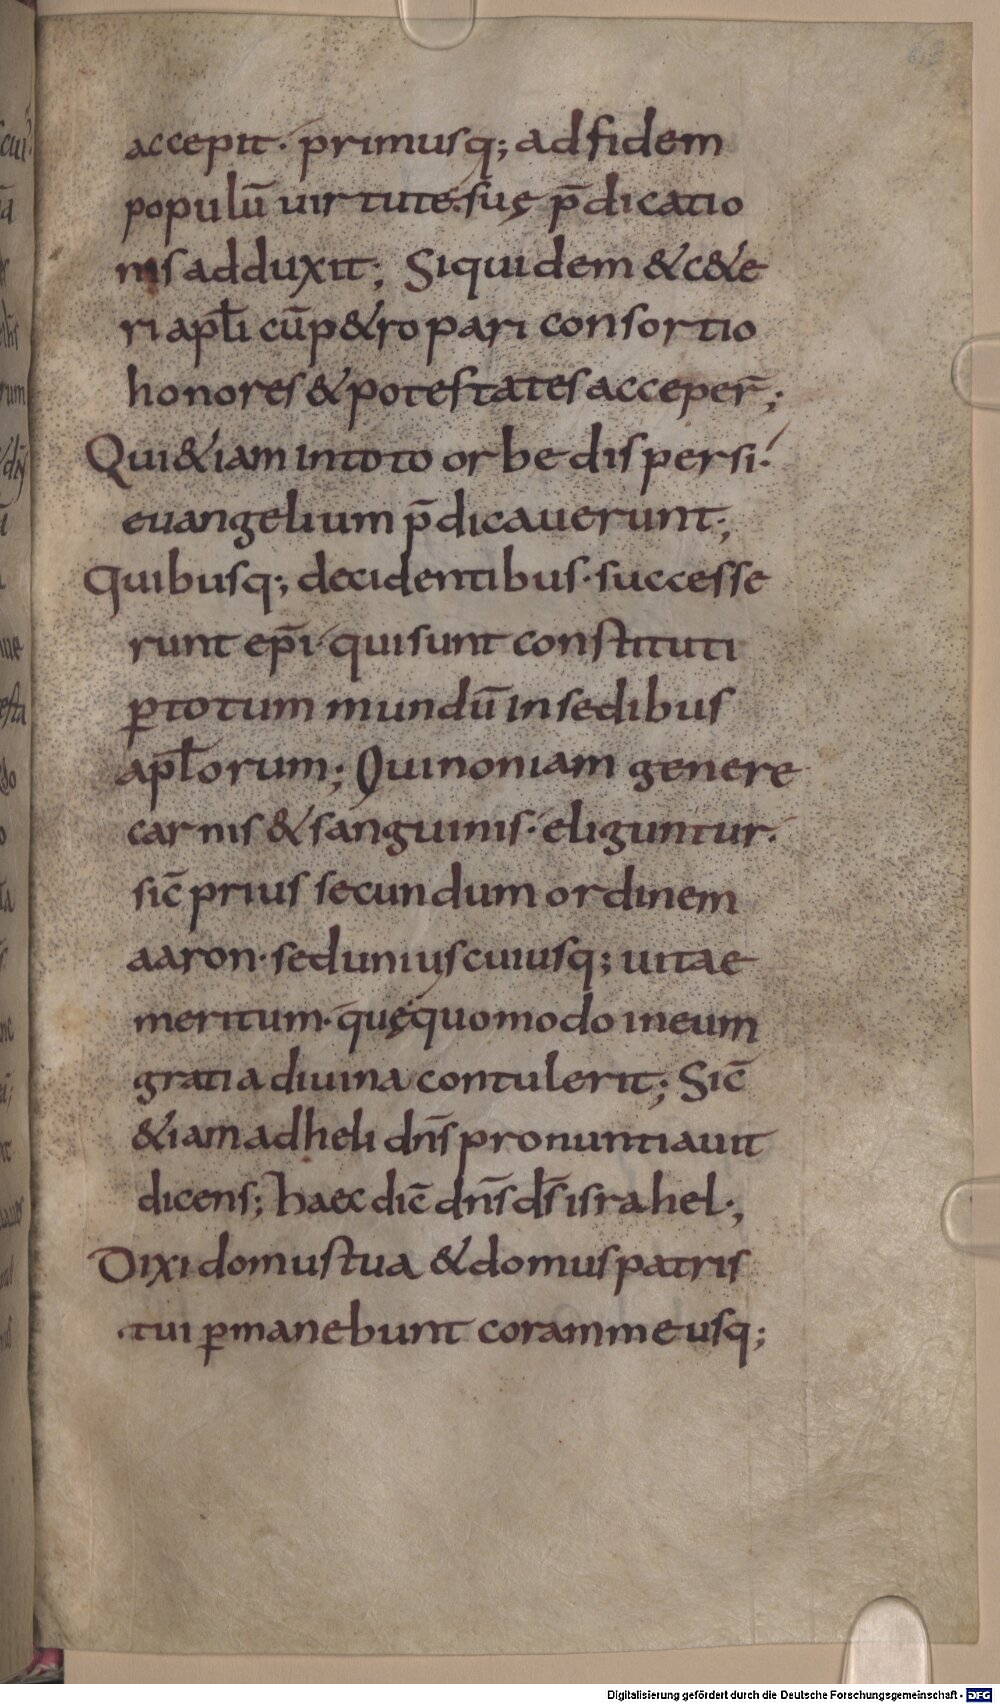 accepit· primusq; ad fidem
populū uirtute suę p̄dicatio
nis adduxit; Siquidem & c&e
ri apl̄i cū p&ro pari consortio
honores & potestates acceper̄;
Qui &iam in toto orbe dispersi·
euangelium p̄dicauerunt;
Quibusq; decidentibus· successe
runt ep̄i· qui sunt constituti
ꝑ totum mundū in sedibus
apl̄orum; Qui non iam genere
carnis & sanguinis· eliguntur·
sic̄ prius secundum ordinem
aaron· sed uniuscuiusq; uitae
meritum· quę quomodo in eum
gratia diuina contulerit; Sic̄
&iam ad heli dn̄s pronuntiauit
dicens; haec dic̄ dn̄s ds̄ israhel·,
Dixi domus tua & domus patris
tui ꝑmanebunt coram me usq;
Digitalisierung gefördert durch die Deutsche Forschungsgemeinschaft - DFG